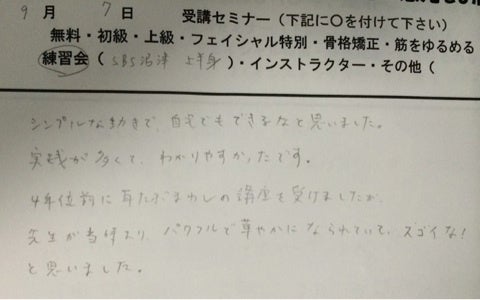 9月 7日 受講セミナー（下記に〇を付けて下さい）
無料・初級・上級・フェイシャル特別・骨格矯正・筋をゆるめる
練習会（SBS沼津 上半身）・インストラクター・その他（
シンプルな動きで、自宅でもできるなと思いました。
実践が多くて、わかりやすかったです。
4年位前に耳たぶまわしの講座を受けましたが、
先生が当時より、パワフルで華やかになられていて、スゴイな!
と思いました。